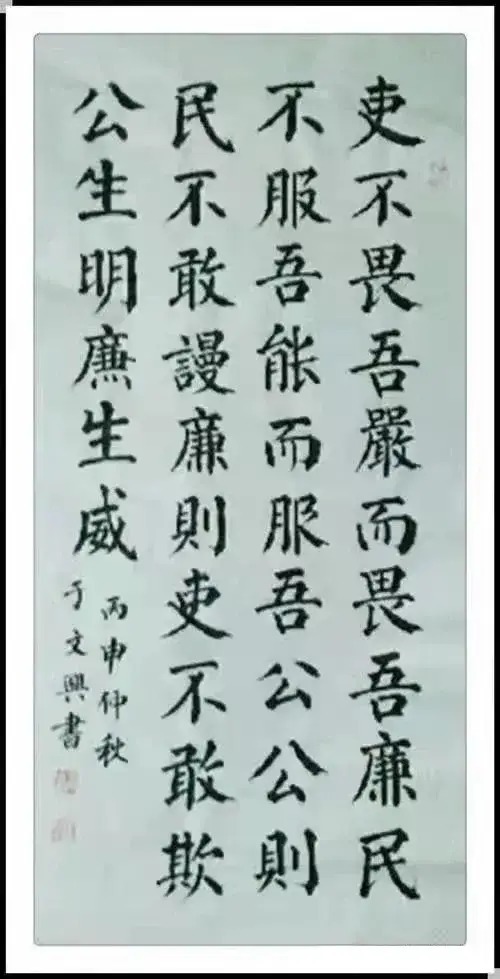 吏不畏吾嚴而畏吾廉民
不服吾能而服吾公公則
民不敢謾廉則吏不敢欺
公生明廉生威
丙申仲秋
于文興書